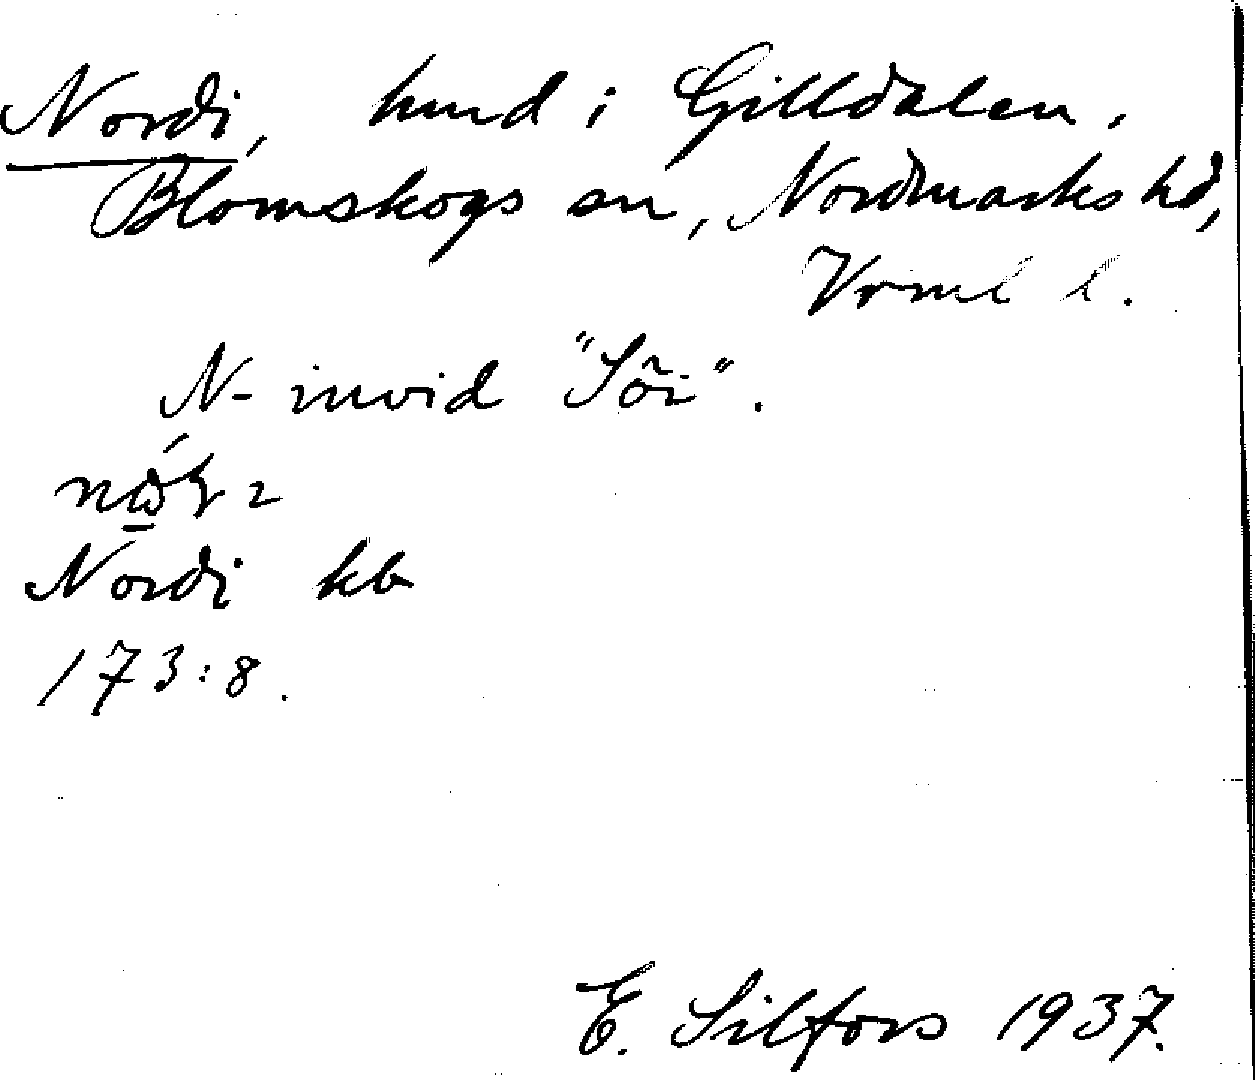 Nordi, hmd i Gilldalen,
Blomskogs sn, Nordmarks hd,
Vrml l.
N- invid "Söi".
Nordi kb
173:8.
E. Silfors 1937.